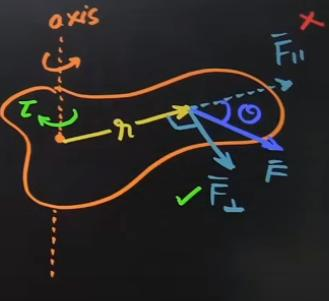 axis
F̄||
τ
r
θ
F̄
F̄⊥